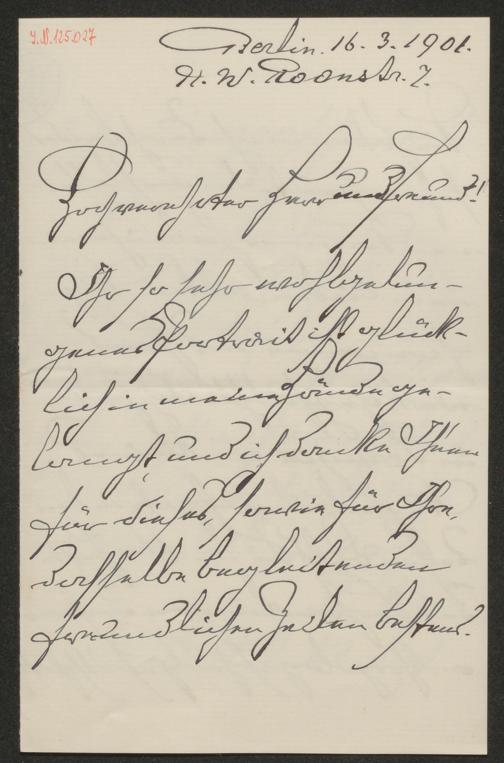 J.N.125.027
Berlin. 16. 3. 1901.
N. W. Roonstr. 7.
Hochverehrter Herr und Freund!
Ihr so sehr wohlgelun-
genes Portrait ist glück-
lich in meine Hände ge-
langt, und ich danke Ihnen
für dieses, sowie für Ihre,
dasselbe begleitenden
freundlichen Zeilen bestens.